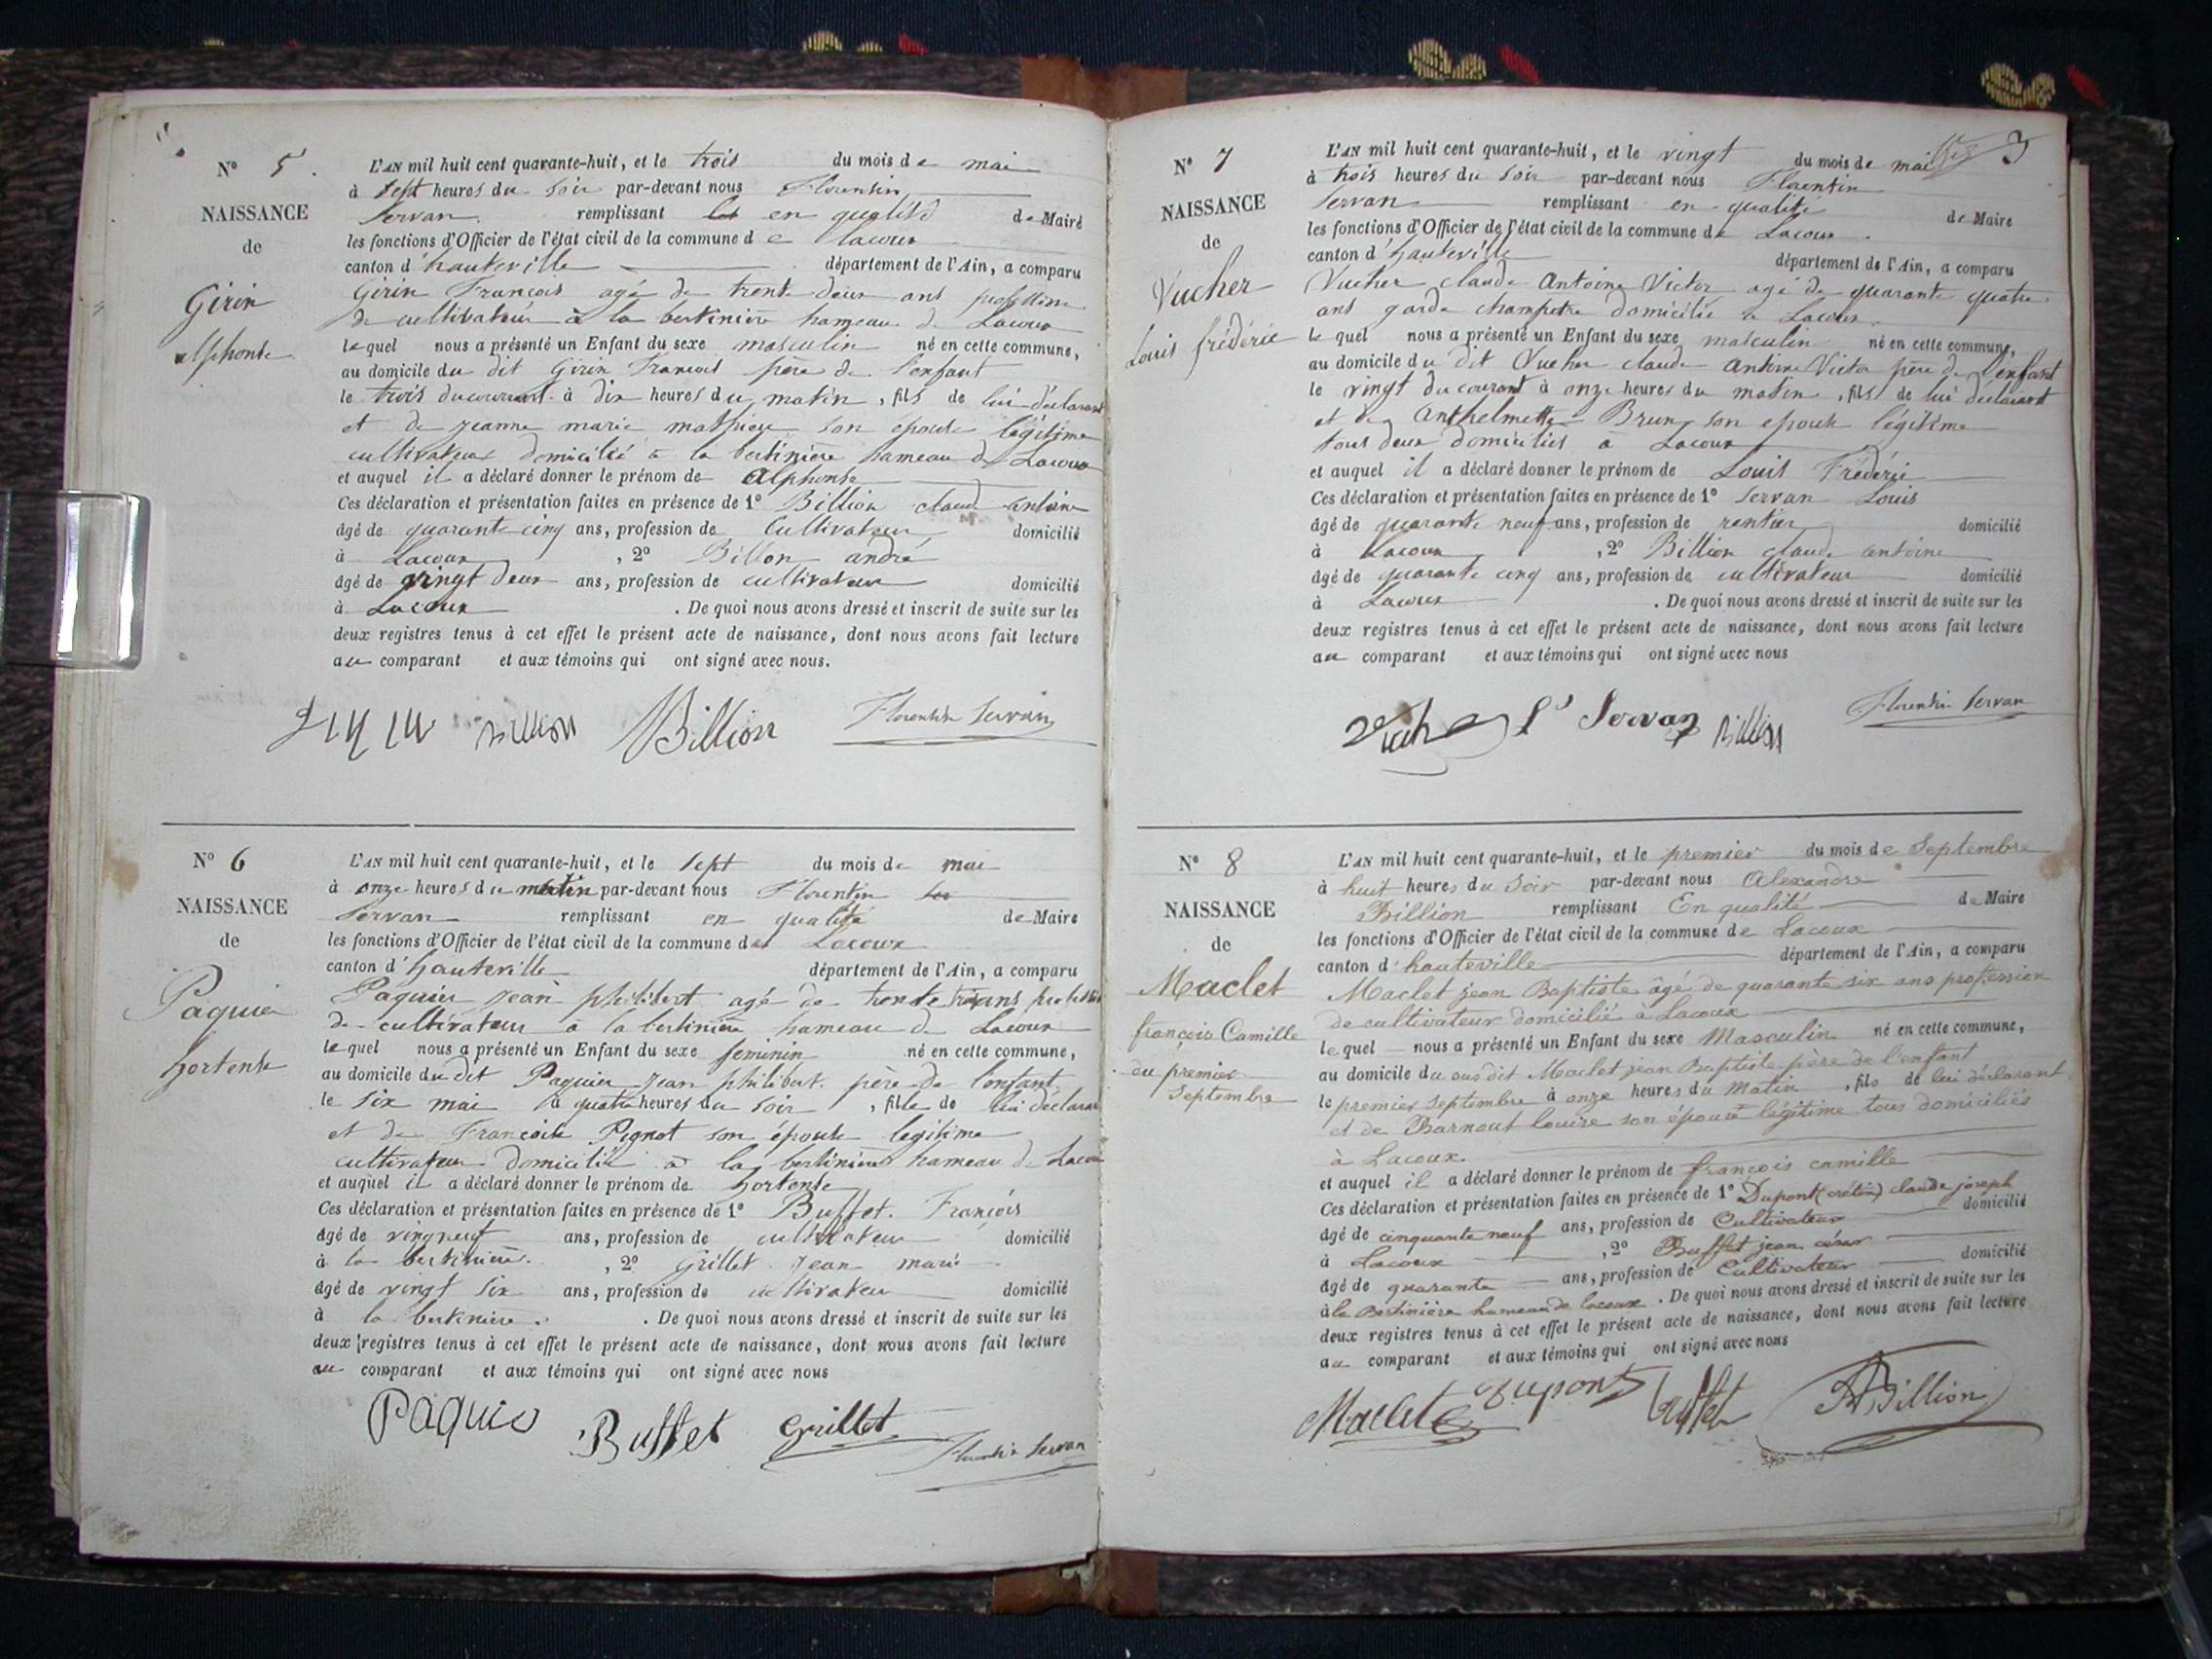 N° 5.
NAISSANCE
de
Girin
alphonse
L'AN mil huit cent quarante-huit, et le trois du mois de mai
à sept heures du soir par-devant nous Florentin
Servan remplissant en qualité de Maire
les fonctions d'Officier de l'état civil de la commune de Lacoux
canton d'hauteville département de l'Ain, a comparu
Girin François agé de trente deux ans profession
de cultivateur à la bertinière hameau de Lacoux
lequel nous a présenté un Enfant du sexe masculin né en cette commune,
au domicile du dit Girin François père de l'enfant
le trois du courant à dix heures du matin, fils de lui déclarant
et de jeanne marie mathieu son epouse légitime
cultivateur domicilié à la bertinière hameau de Lacoux
et auquel il a déclaré donner le prénom de Alphonse
Ces déclaration et présentation faites en présence de 1° Billion claude antoine
âgé de quarante cinq ans, profession de Cultivateur domicilié
à Lacoux, 2° Billon andré
âgé de vingt deux ans, profession de cultivateur domicilié
à Lacoux. De quoi nous avons dressé et inscrit de suite sur les
deux registres tenus à cet effet le présent acte de naissance, dont nous avons fait lecture
au comparant et aux témoins qui ont signé avec nous.
girin billion Billion Florentin Servan
N° 6
NAISSANCE
de
Paquier
hortense
L'AN mil huit cent quarante-huit, et le sept du mois de mai
à onze heures du matin par-devant nous Florentin
Servan remplissant en qualité de Maire
les fonctions d'Officier de l'état civil de la commune de Lacoux
canton d'hauteville département de l'Ain, a comparu
Paquier jean philibert agé de trente trois ans profession
de cultivateur à la bertinière hameau de Lacoux
lequel nous a présenté un Enfant du sexe feminin né en cette commune,
au domicile du dit Paquier jean philibert père de l'enfant
le six mai à quatre heures du soir, fille de lui déclarant
et de Françoise Pignot son épouse legitime
cultivateur domicilié à la bertinière hameau de Lacoux
et auquel il a déclaré donner le prénom de hortense
Ces déclaration et présentation faites en présence de 1° Buffet François
âgé de vingneuf ans, profession de cultivateur domicilié
à la bertinière, 2° Grillet jean marie
âgé de vingt six ans, profession de cultivateur domicilié
à la bertinière. De quoi nous avons dressé et inscrit de suite sur les
deux registres tenus à cet effet le présent acte de naissance, dont nous avons fait lecture
au comparant et aux témoins qui ont signé avec nous
Paquie Buffet Grillet Florentin Servan
3
N° 7
NAISSANCE
de
Vucher
Louis frédéric
L'AN mil huit cent quarante-huit, et le vingt du mois de mai
à trois heures du soir par-devant nous Florentin
Servan remplissant en qualité de Maire
les fonctions d'Officier de l'état civil de la commune de Lacoux.
canton d'hauteville département de l'Ain, a comparu
Vucher claude Antoine Victor agé de quarante quatre
ans garde champetre domicilié à Lacoux
lequel nous a présenté un Enfant du sexe masculin né en cette commune,
au domicile du dit Vucher claude Antoine Victor père de l'enfant
le vingt du courant à onze heures du matin, fils de lui déclarant
et de Anthelmette Brun son epouse légitime
tous deux domiciliés à Lacoux
et auquel il a déclaré donner le prénom de Louis Frédéric
Ces déclaration et présentation faites en présence de 1° Servan Louis
âgé de quarante neuf ans, profession de rentier domicilié
à Lacoux, 2° Billion claude antoine
âgé de quarante cinq ans, profession de cultivateur domicilié
à Lacoux. De quoi nous avons dressé et inscrit de suite sur les
deux registres tenus à cet effet le présent acte de naissance, dont nous avons fait lecture
au comparant et aux témoins qui ont signé avec nous
Ls Servan billion Florentin Servan
N° 8
NAISSANCE
de
Maclet
françois Camille
du premier
Septembre
L'AN mil huit cent quarante-huit, et le premier du mois de Septembre
à huit heures du Soir par-devant nous Alexandre
Billion remplissant En qualité de Maire
les fonctions d'Officier de l'état civil de la commune de Lacoux
canton d'hauteville département de l'Ain, a comparu
Maclet jean Baptiste âgé de quarante six ans profession
de cultivateur domicilié à Lacoux
lequel nous a présenté un Enfant du sexe Masculin né en cette commune,
au domicile du sus dit Maclet jean Baptiste père de l'enfant
le premier Septembre à onze heures du Matin, fils de lui déclarant,
et de Barnout louise son épouse légitime tous domiciliés
à Lacoux.
et auquel il a déclaré donner le prénom de françois camille
Ces déclaration et présentation faites en présence de 1° Dupont (crétin) claude joseph
âgé de cinquante neuf ans, profession de Cultivateur domicilié
à Lacoux, 2° Buffet jean
âgé de quarante ans, profession de Cultivateur domicilié
à la Bertinière hameau de lacoux. De quoi nous avons dressé et inscrit de suite sur les
deux registres tenus à cet effet le présent acte de naissance, dont nous avons fait lecture
au comparant et aux témoins qui ont signé avec nous
Maclet dupont buffet ABillion